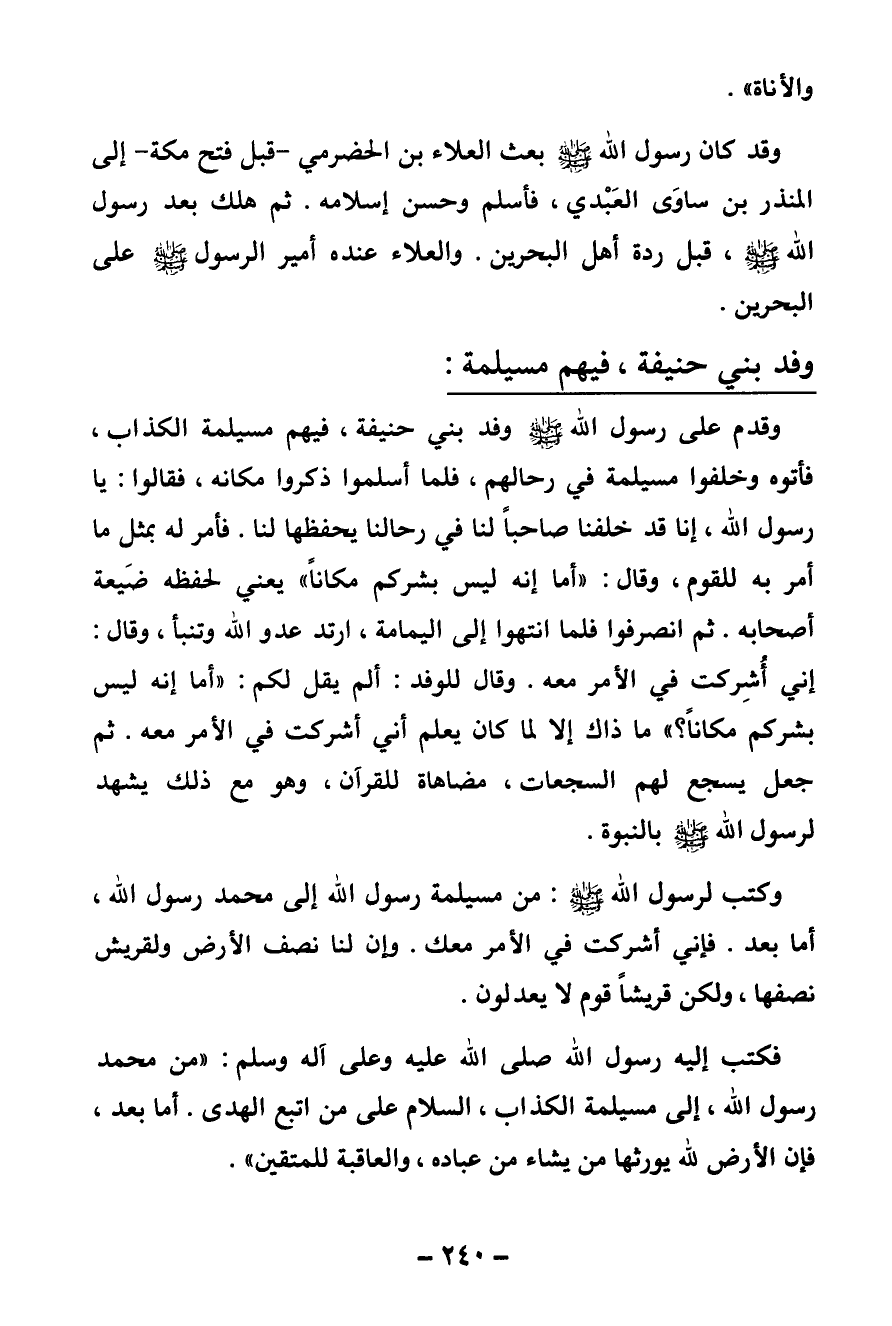 والأناة» .
وقد كان رسول الله ﷺ بعث العلاء بن الحضرمي -قبل فتح مكة- إلى
المنذر بن ساوَى العَبْدي ، فأسلم وحسن إسلامه . ثم هلك بعد رسول
الله ﷺ ، قبل ردة أهل البحرين . والعلاء عنده أمير الرسول ﷺ على
البحرين .
وفد بني حنيفة ، فيهم مسيلمة :
وقدم على رسول الله ﷺ وفد بني حنيفة ، فيهم مسيلمة الكذاب ،
فأتوه وخلفوا مسيلمة في رحالهم ، فلما أسلموا ذكروا مكانه ، فقالوا : يا
رسول الله ، إنا قد خلفنا صاحباً لنا في رحالنا يحفظها لنا . فأمر له بمثل ما
أمر به للقوم ، وقال : «أما إنه ليس بشركم مكاناً» يعني لحفظه ضَيعة
أصحابه . ثم انصرفوا فلما انتهوا إلى اليمامة ، ارتد عدو الله وتنبأ ، وقال :
إني أُشرِكت في الأمر معه . وقال للوفد : ألم يقل لكم : «أما إنه ليس
بشركم مكاناً؟» ما ذاك إلا لما كان يعلم أني أشركت في الأمر معه . ثم
جعل يسجع لهم السجعات ، مضاهاة للقرآن ، وهو مع ذلك يشهد
لرسول الله ﷺ بالنبوة .
وكتب لرسول الله ﷺ : من مسيلمة رسول الله إلى محمد رسول الله ،
أما بعد . فإني أشركت في الأمر معك . وإن لنا نصف الأرض ولقريش
نصفها ، ولكن قريشاً قوم لا يعدلون .
فكتب إليه رسول الله صلى الله عليه وعلى آله وسلم : «من محمد
رسول الله ، إلى مسيلمة الكذاب ، السلام على من اتبع الهدى . أما بعد ،
فإن الأرض لله يورثها من يشاء من عباده ، والعاقبة للمتقين» .
- ٢٤٠ -